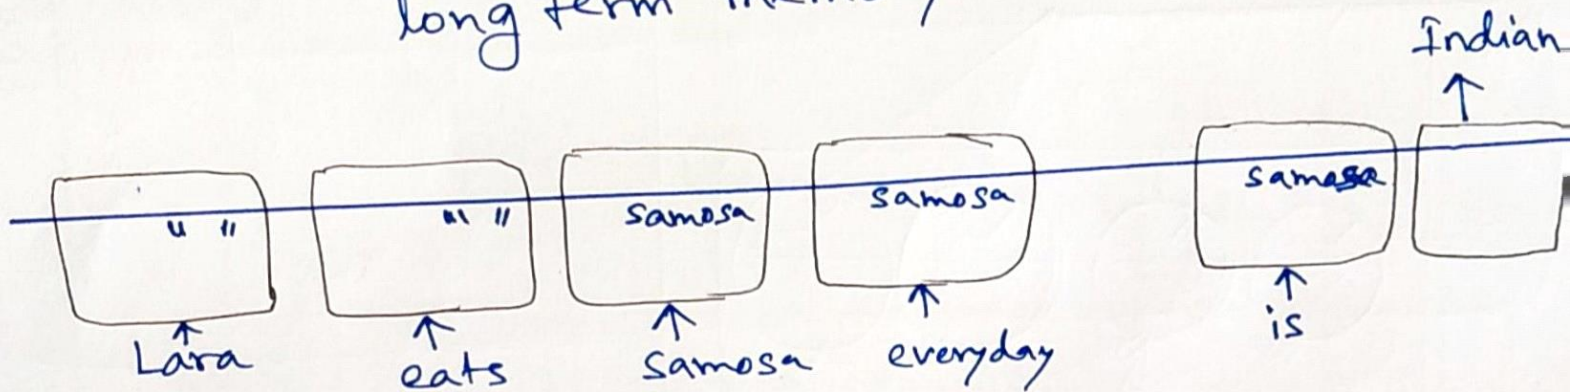 long term
Indian
" " " " samosa samosa samosa
Lara eats samosa everyday is